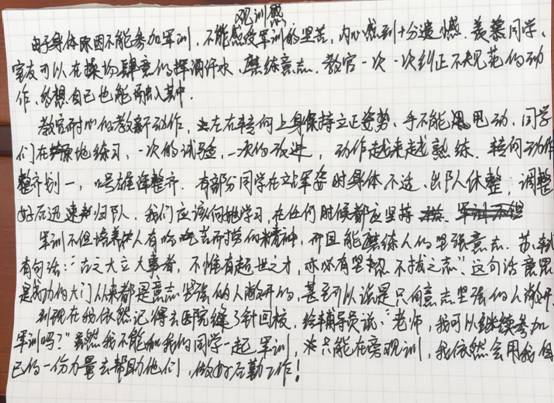 观训感
由于身体原因不能参加军训，不能感受军训的坚苦，内心感到十分遗憾。羡慕同学，
室友可以在操场肆意的挥洒汗水、磨练意志。教官一次一次纠正不规范的动
作，多想自己也能融入其中。
教官耐心的教新动作，左右转向上身保持立正姿势，手不能甩动，同学
们在原地练习，一次的试验，一次的改进，动作越来越熟练，转向动作
整齐划一，口号雄浑整齐。有部分同学在立军姿时身体不适，出队休整，调整
好后迅速归队。我们应该向她学习，在任何时候都应坚持
军训不但培养人有吃苦耐劳的精神，而且能磨练人的坚强意志。苏轼
有句话："古之大立大事者，不惟有超世之才，亦必有坚韧不拔之志"这句话意思
是成功的大门从来都是意志坚强的人敞开的，甚至可以说是只向意志坚强的人敞开
到现在我依然记得去医院缝了针回校，给辅导员说："老师，我可以继续参加
军训吗？"虽然我不能和我的同学一起军训，只能在旁观训，我依然会用我自
己的一份力量去帮助他们，做好后勤工作！